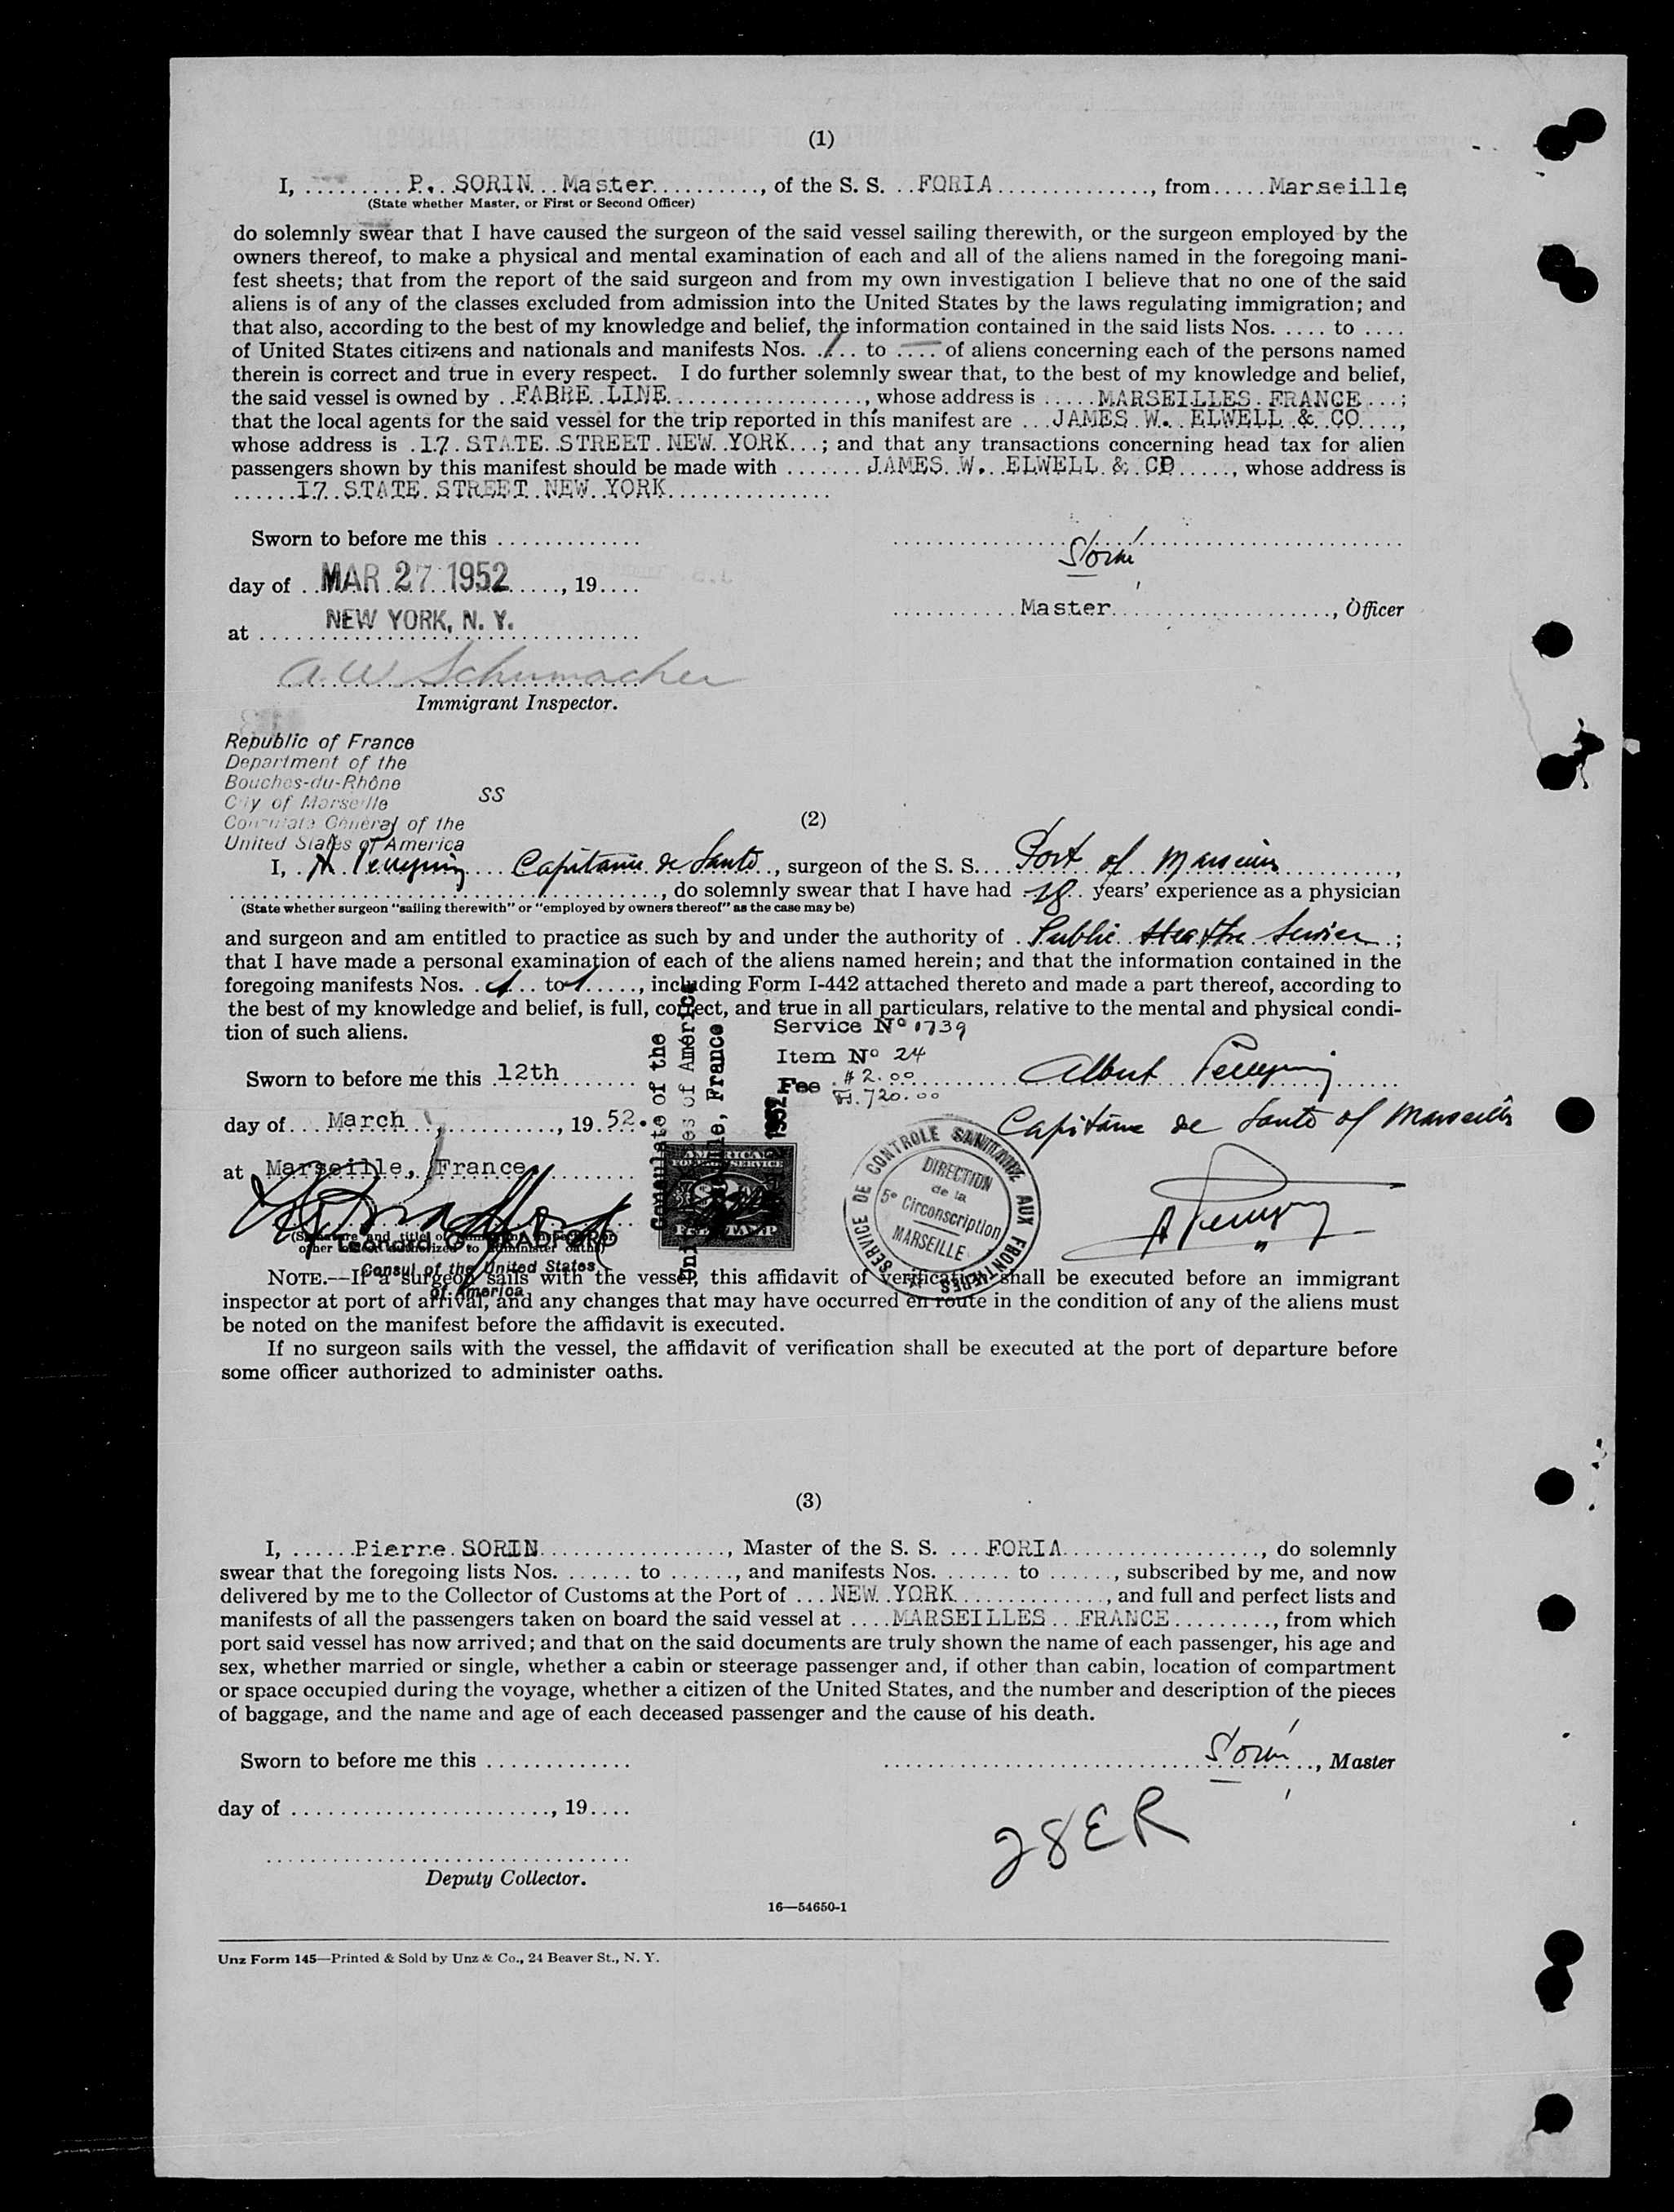 (1)
I, .......... P. SORIN Master ..........., of the S. S. FORIA ..............., from ..... Marseille
(State whether Master, or First or Second Officer)
do solemnly swear that I have caused the surgeon of the said vessel sailing therewith, or the surgeon employed by the
owners thereof, to make a physical and mental examination of each and all of the aliens named in the foregoing mani-
fest sheets; that from the report of the said surgeon and from my own investigation I believe that no one of the said
aliens is of any of the classes excluded from admission into the United States by the laws regulating immigration; and
that also, according to the best of my knowledge and belief, the information contained in the said lists Nos. .... to ....
of United States citizens and nationals and manifests Nos. .1.. to .... of aliens concerning each of the persons named
therein is correct and true in every respect. I do further solemnly swear that, to the best of my knowledge and belief,
the said vessel is owned by ..FABRE LINE..................., whose address is .....MARSEILLES FRANCE...;
that the local agents for the said vessel for the trip reported in this manifest are ...JAMES W. ELWELL & CO....,
whose address is .17 STATE STREET NEW YORK...; and that any transactions concerning head tax for alien
passengers shown by this manifest should be made with .......JAMES W. ELWELL & CO....., whose address is
......17 STATE STREET NEW YORK...............
Sworn to before me this .............
Sorin
day of ..MAR 27 1952....., 19....
...........Master...................., Officer
at NEW YORK, N. Y.
A. W. Schumacher
Immigrant Inspector.
Republic of France
Department of the
Bouches-du-Rhône
City of Marseille
SS
Consulate General of the
(2)
United States of America
I, .A. .... Capitaine de Santé.., surgeon of the S. S.... Port of Marseille ..........,
......................................, do solemnly swear that I have had .28.. years' experience as a physician
(State whether surgeon "sailing therewith" or "employed by owners thereof" as the case may be)
and surgeon and am entitled to practice as such by and under the authority of . Public Health Service .;
that I have made a personal examination of each of the aliens named herein; and that the information contained in the
foregoing manifests Nos. ..1... to 1....., including Form I-442 attached thereto and made a part thereof, according to
the best of my knowledge and belief, is full, correct, and true in all particulars, relative to the mental and physical condi-
tion of such aliens.
Service No 1739
Item No 24
Fee $2.00
Fr. 720.00
Consulate of the
United States of America
Marseille, France
Sworn to before me this .12th........
Albert
day of... March ............, 19.52.
Capitaine de Santé of Marseille
at Marseille, France..........
AMERICAN
FOREIGN SERVICE
$2
FEE STAMP
SERVICE DE CONTROLE SANITAIRE AUX FRONTIERES
DIRECTION
de la
5e Circonscription
MARSEILLE
(Signature and title of immigrant inspector or
other officer authorized to administer oaths)
Leonard G. BRADFORD
Consul of the United States
of America
NOTE.—If a surgeon sails with the vessel, this affidavit of verification shall be executed before an immigrant
inspector at port of arrival, and any changes that may have occurred en route in the condition of any of the aliens must
be noted on the manifest before the affidavit is executed.
If no surgeon sails with the vessel, the affidavit of verification shall be executed at the port of departure before
some officer authorized to administer oaths.
(3)
I, ......Pierre SORIN..................., Master of the S. S. ...FORIA..................., do solemnly
swear that the foregoing lists Nos. ....... to ......, and manifests Nos. ....... to ......, subscribed by me, and now
delivered by me to the Collector of Customs at the Port of ...NEW YORK..............., and full and perfect lists and
manifests of all the passengers taken on board the said vessel at ....MARSEILLES FRANCE........., from which
port said vessel has now arrived; and that on the said documents are truly shown the name of each passenger, his age and
sex, whether married or single, whether a cabin or steerage passenger and, if other than cabin, location of compartment
or space occupied during the voyage, whether a citizen of the United States, and the number and description of the pieces
of baggage, and the name and age of each deceased passenger and the cause of his death.
Sworn to before me this .............
Sorin ..., Master
day of ......................., 19....
28ER
Deputy Collector.
16—54650-1
Unz Form 145—Printed & Sold by Unz & Co., 24 Beaver St., N. Y.